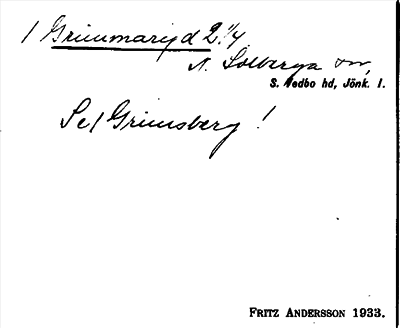 1 Grimmaryd 2 1/4
N. Solberga sn,
S. Vedbo hd, Jönk. l.
Se 1 Grimsberg !
FRITZ ANDERSSON 1933.